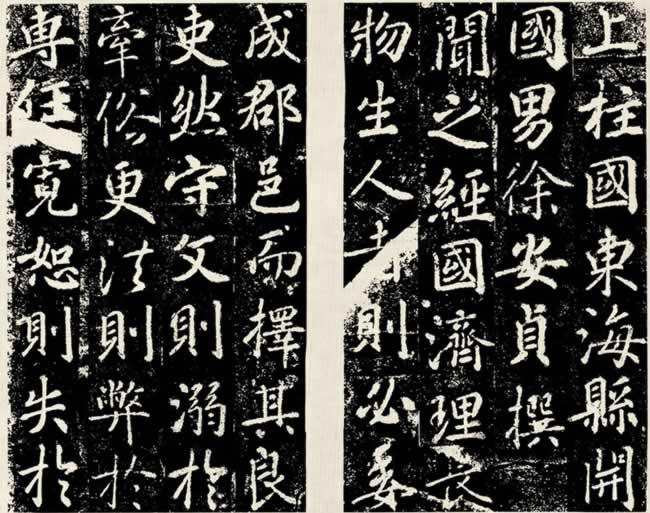 上柱國東海縣開
國男徐安貞撰
聞之經國濟理長
物生人者則必委
成郡邑而擇其良
吏然守文則溺於
牽俗更法則弊於
專任寬恕則失於